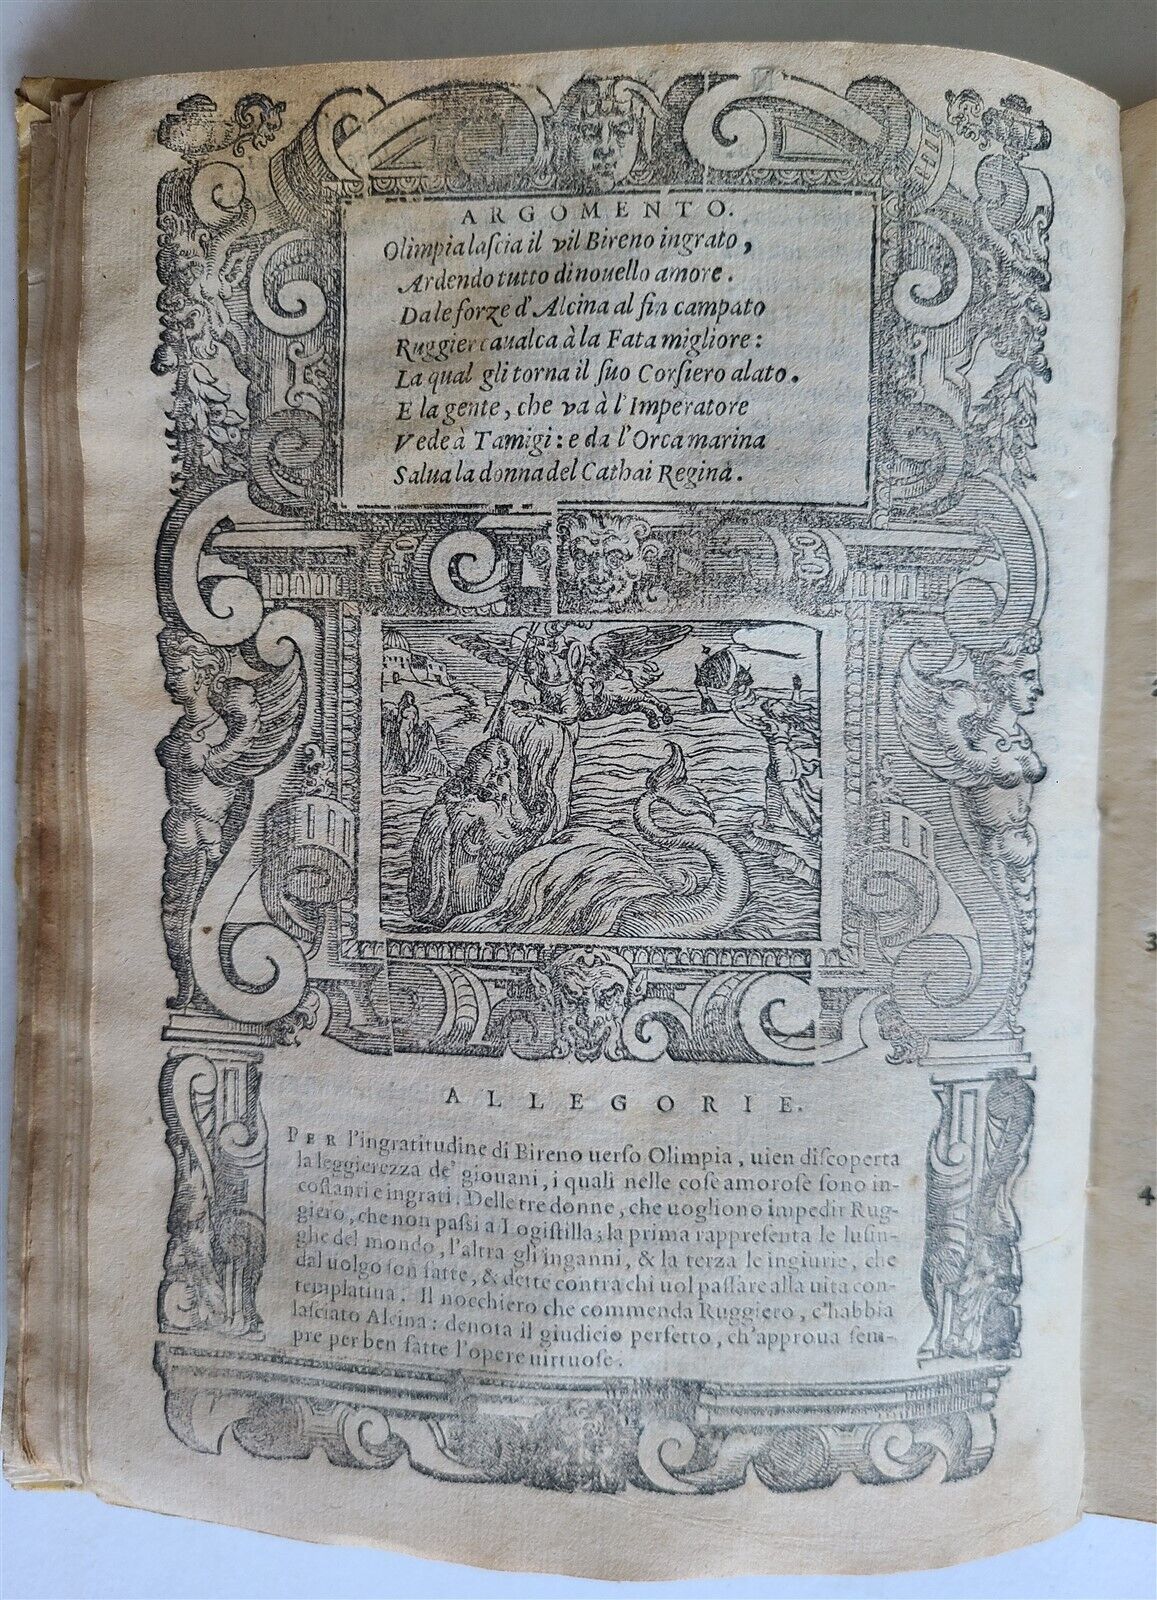 ARGOMENTO.
Olimpia lascia il vil Bireno ingrato,
Ardendo tutto di nouello amore.
Da le forze d'Alcina al fin campato
Ruggier caualca à la Fata migliore:
La qual gli torna il suo Corsiero alato.
E la gente, che va à l'Imperatore
Vede à Tamigi: e da l'Orca marina
Salua la donna del Cathai Regina.
ALLEGORIE.
PER l'ingratitudine di Bireno uerso Olimpia, uien discoperta
la leggierezza de' giouani, i quali nelle cose amorose sono in-
costanti e ingrati. Delle tre donne, che uogliono impedir Rug-
giero, che non passi a Logistilla; la prima rappresenta le lusin-
ghe del mondo, l'altra gli inganni, & la terza le ingiurie, che
dal uolgo son fatte, & dette contra chi uol passare alla uita con-
templatiua. Il nocchiero che commenda Ruggiero, c'habbia
lasciato Alcina: denota il giudicio perfetto, ch'approua sem-
pre per ben fatte l'opere uirtuose.
3
4